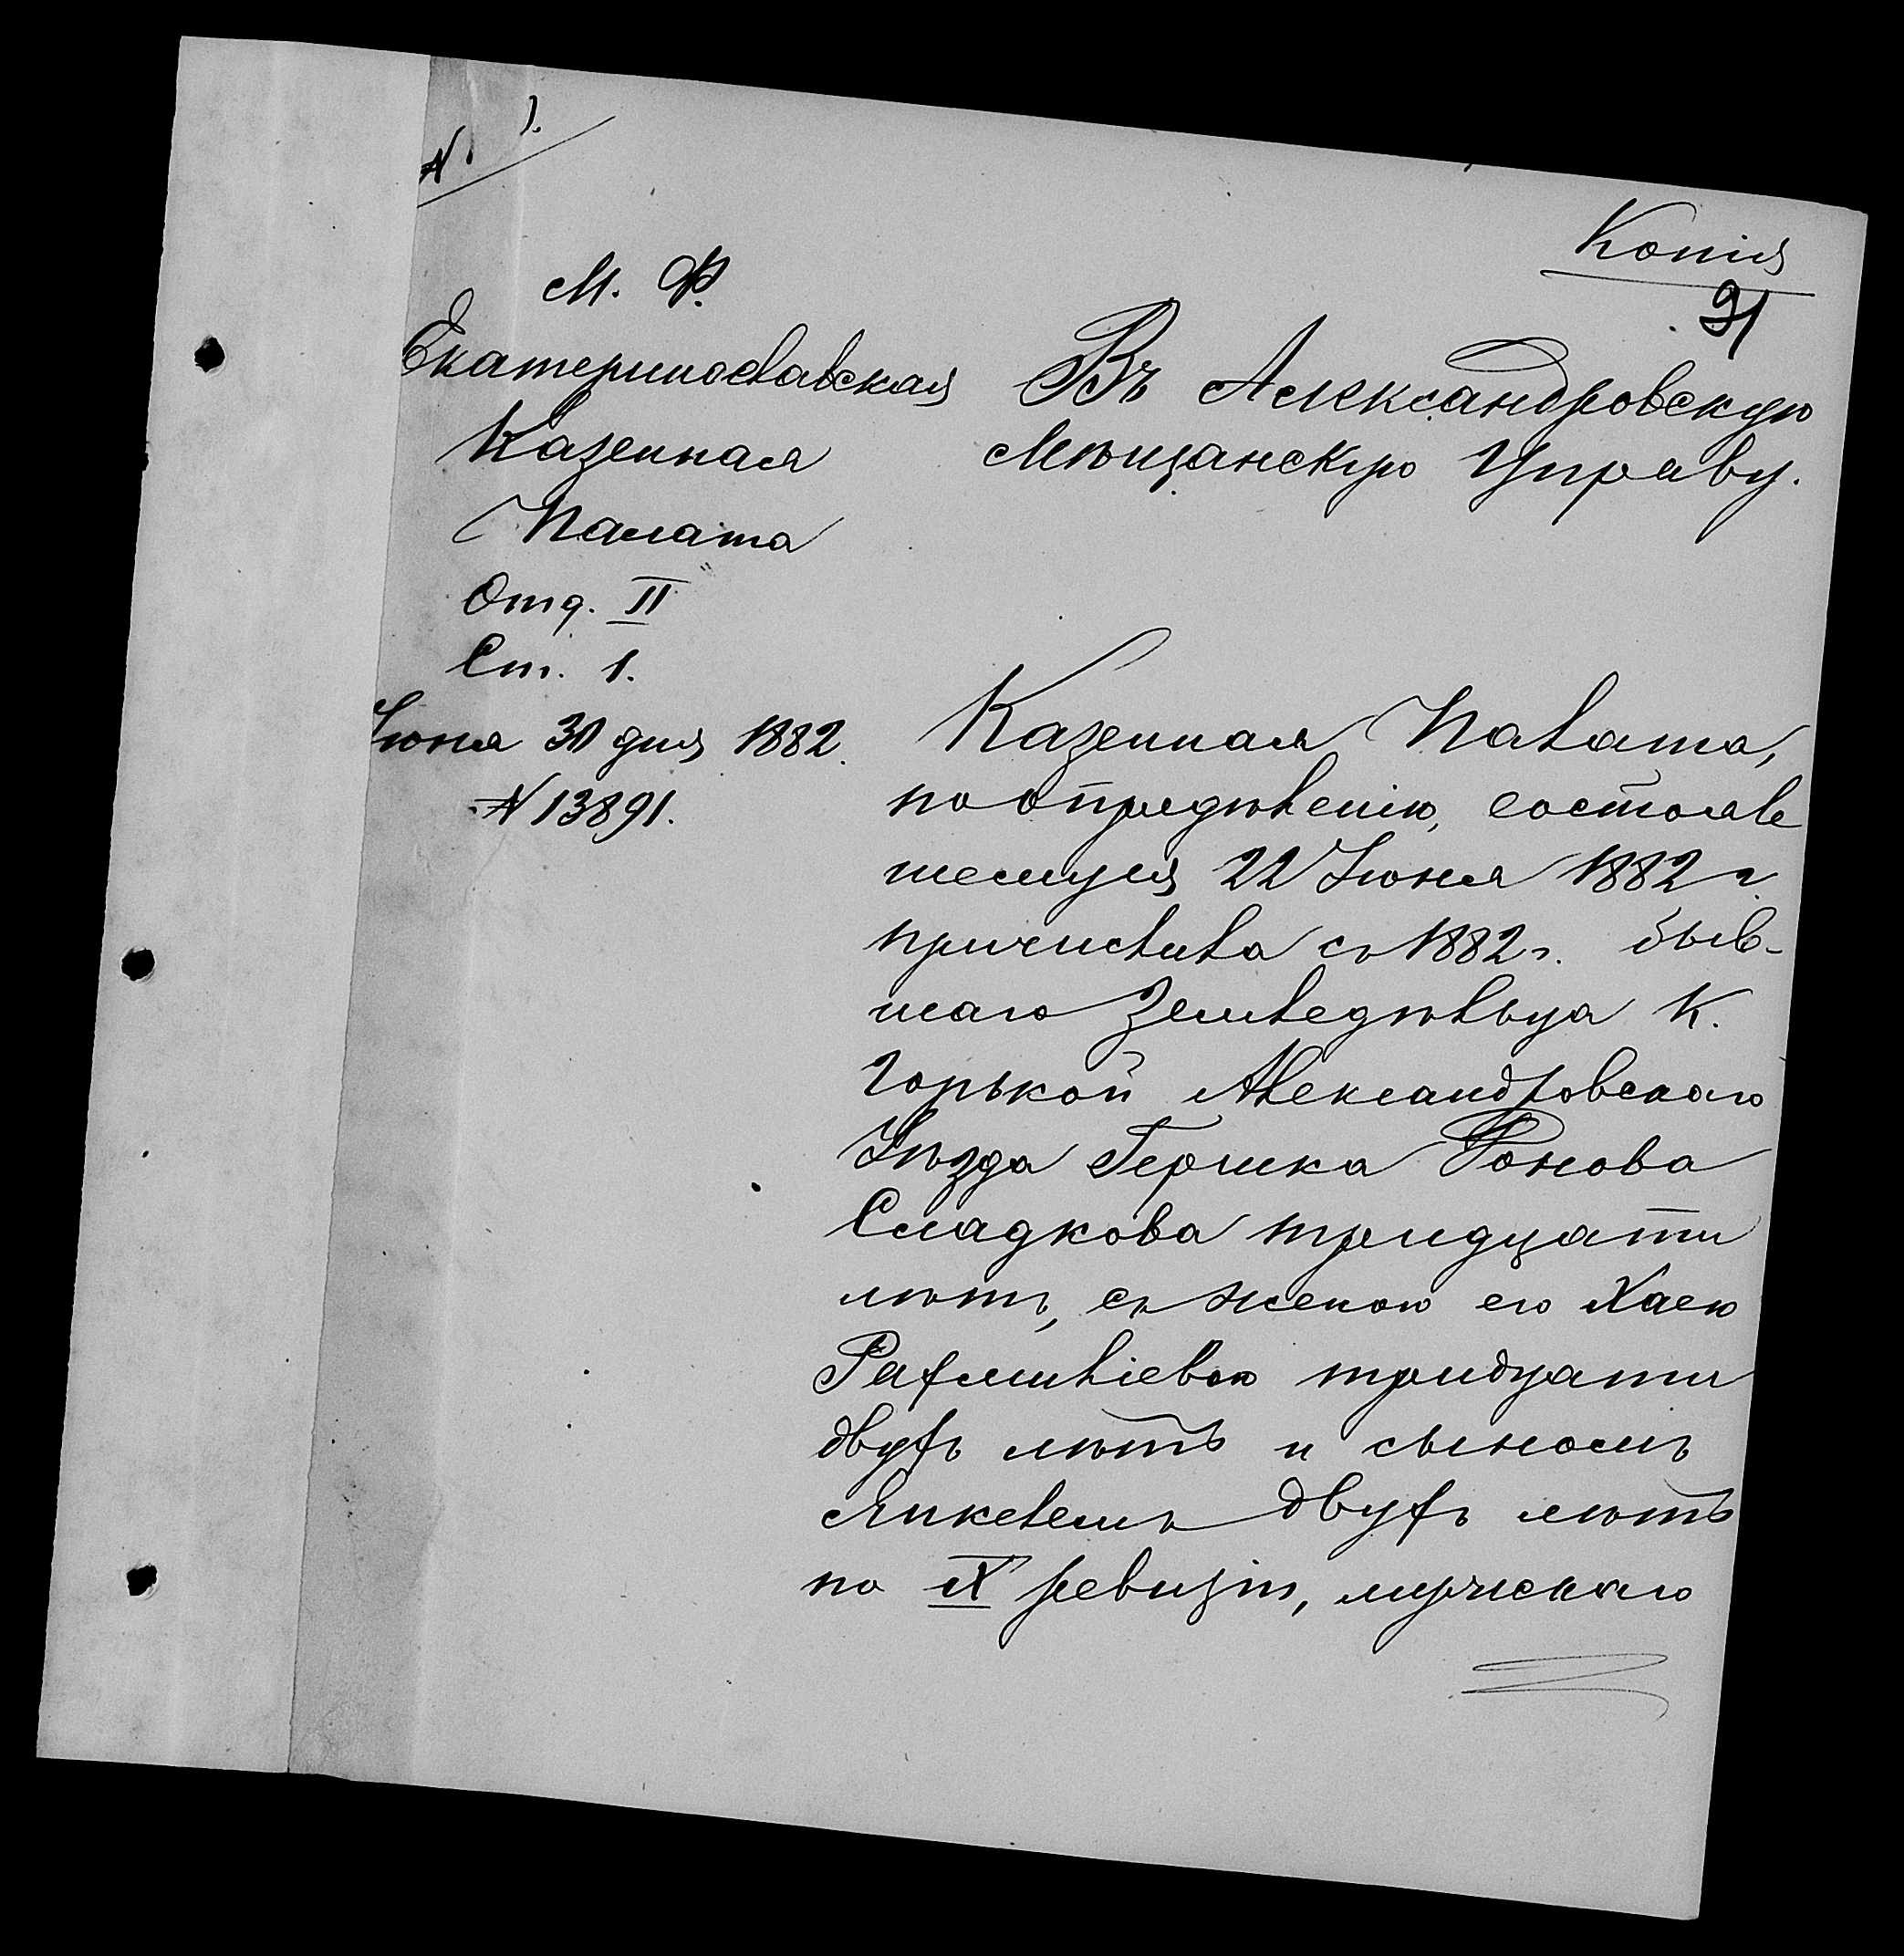 N 1.
Копія
91
М. Ф.
Екатеринославская
Казенная
Палата
Отд. II
Ст. 1.
Іюня 30 дня 1882.
N 13891.
Въ Александровскую
Мѣщанскую Управу.
Казенная Палата,
по опредѣленію, состоявшемуся 22 Іюня 1882 г.
причислила съ 1882 г. быв-
шаго Земледѣльца К.
Горькой Александровскаго
Уѣзда Гершка Фонова
Сладкова тридцати
лѣтъ, съ женою его Хаею
Рафаиловою тридцати
двухъ лѣтъ и сыномъ
Янкелемъ двухъ лѣтъ
по IX ревизіи, мужскаго